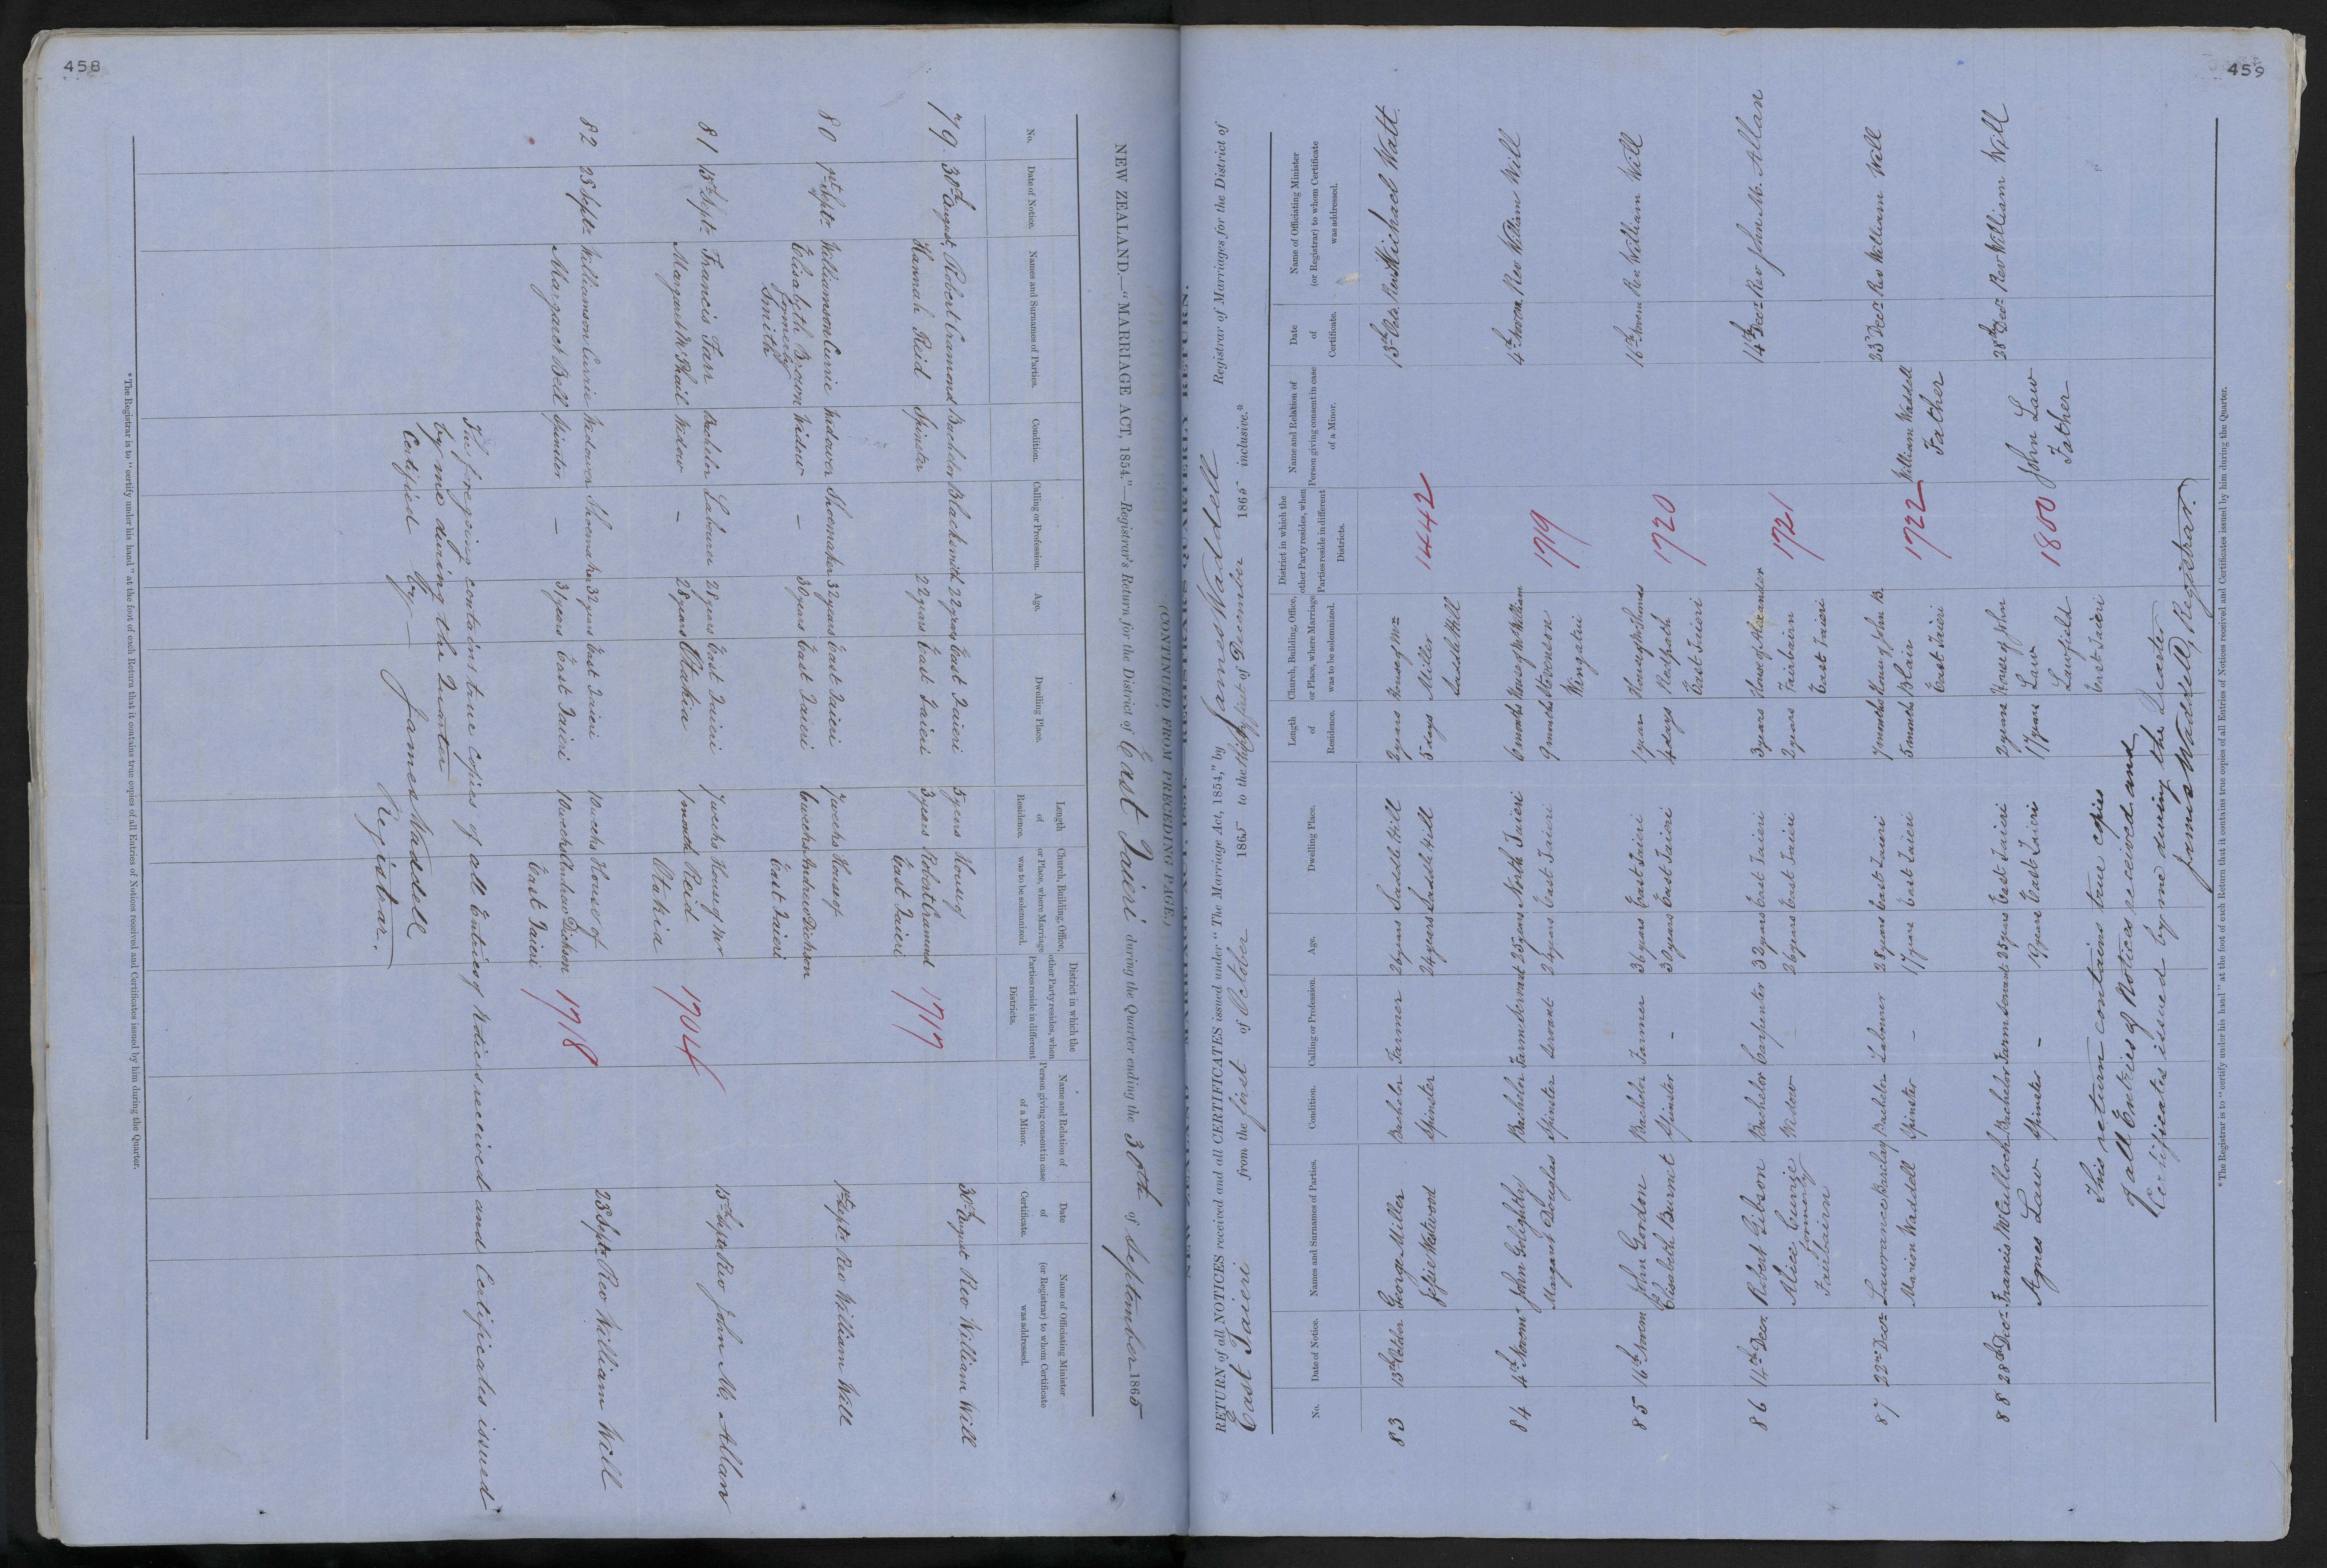 458
NEW ZEALAND.—"MARRIAGE ACT, 1854."—Registrar's Return for the District of East Taieri during the Quarter ending the 30th of September 1865
No.
Date of Notice.
Names and Surnames of Parties.
Condition.
Calling or Profession.
Age.
Dwelling Place.
Length of Residence.
Church, Building, Office, or Place, where Marriage was to be solemnized.
District in which the other Party resides, when Parties reside in different Districts.
Name and Relation of Person giving consent in case of a Minor.
Date of Certificate.
Name of Officiating Minister (or Registrar) to whom Certificate was addressed.
79 30th August Robert Cramond Bachelor Blacksmith 22 years East Taieri 5 years House of 1717 30th August Rev William Will
Hannah Reid Spinster 22 years East Taieri 3 years Robert Cramond
East Taieri
80 1st Septr Williamson Currie Widower Shoemaker 32 years East Taieri 7 weeks House of 1st Septr Rev William Will
Elisabeth Brown Widow — 30 years East Taieri 6 weeks Andrew Dickson
Formerly East Taieri
Smith
81 15th Septr Francis Farr Bachelor Labourer 28 years East Taieri 7 weeks House of Mr 1704 15th Septr Rev John M. Allan
Margaret McPhail Widow — 28 years Otakia 1 month Reid
Otakia
82 23 Septr Williamson Currie Widower Shoemaker 32 years East Taieri 10 weeks House of 1718 23 Septr Rev William Will
Margaret Bell Spinster — 31 years East Taieri 10 weeks Andrew Dickson
East Taieri
The foregoing contains true copies of all Entries of Notices received and Certificates issued
by me during the Quarter
Certified by — James Waddell
Registrar.
*The Registrar is to "certify under his hand" at the foot of each Return that it contains true copies of all Entries of Notices received and Certificates issued by him during the Quarter.
459
(CONTINUED FROM PRECEDING PAGE.)
RETURN of all NOTICES received and all CERTIFICATES issued under "The Marriage Act, 1854," by James Waddell Registrar of Marriages for the District of
East Taieri from the first of October 1865 to the thirty first of December 1865 inclusive.*
No.
Date of Notice.
Names and Surnames of Parties.
Condition.
Calling or Profession.
Age.
Dwelling Place.
Length of Residence.
Church, Building, Office, or Place, where Marriage was to be solemnized.
District in which the other Party resides, when Parties reside in different Districts.
Name and Relation of Person giving consent in case of a Minor.
Date of Certificate.
Name of Officiating Minister (or Registrar) to whom Certificate was addressed.
83 13th October George Miller Bachelor Farmer 26 years Saddle Hill 2 years House of Mr 1442 13th Octr Rev Michael Watt
Effsie Westwood Spinster 24 years Saddle Hill 5 days Miller
Saddle Hill
84 4th Novem John Golightly Bachelor Farm Servant 25 years North Taieri 6 months House of Mr William 1719 4th Novem Rev William Will
Margaret Douglas Spinster Servant 24 years East Taieri 9 months Stevenson
Wingatui
85 16th Novem John Gordon Bachelor Farmer 36 years East Taieri 1 year House of Mr Thomas 1720 16th Novem Rev William Will
Elisabeth Burnet Spinster — 30 years East Taieri 4 days Redpath
East Taieri
86 14th Decr Robert Gibson Bachelor Carpenter 32 years East Taieri 3 years House of Alexander 1721 14th Decr Rev John M. Allan
Alice Currie Widow — 26 years East Taieri 2 years Fairbairn
Formerly East Taieri
Fairbairn
87 22nd Decr Lawrance Barclay Bachelor Labourer 28 years East Taieri 7 months House of John B. 1722 William Waddell 23 Decr Rev William Will
Marion Waddell Spinster — 17 years East Taieri 5 months Blair Father
East Taieri
88 28th Decr Francis McCulloch Bachelor Farm Servant 25 years East Taieri 2 years House of John 1800 John Law 28th Decr Rev William Will
Agnes Law Spinster — 19 years East Taieri 17 years Law Father
Lawfield
East Taieri
This return contains true copies
of all Entries of Notices received and
Certificates issued by me during the Quarter
James Waddell, Registrar.
*The Registrar is to "certify under his hand" at the foot of each Return that it contains true copies of all Entries of Notices received and Certificates issued by him during the Quarter.